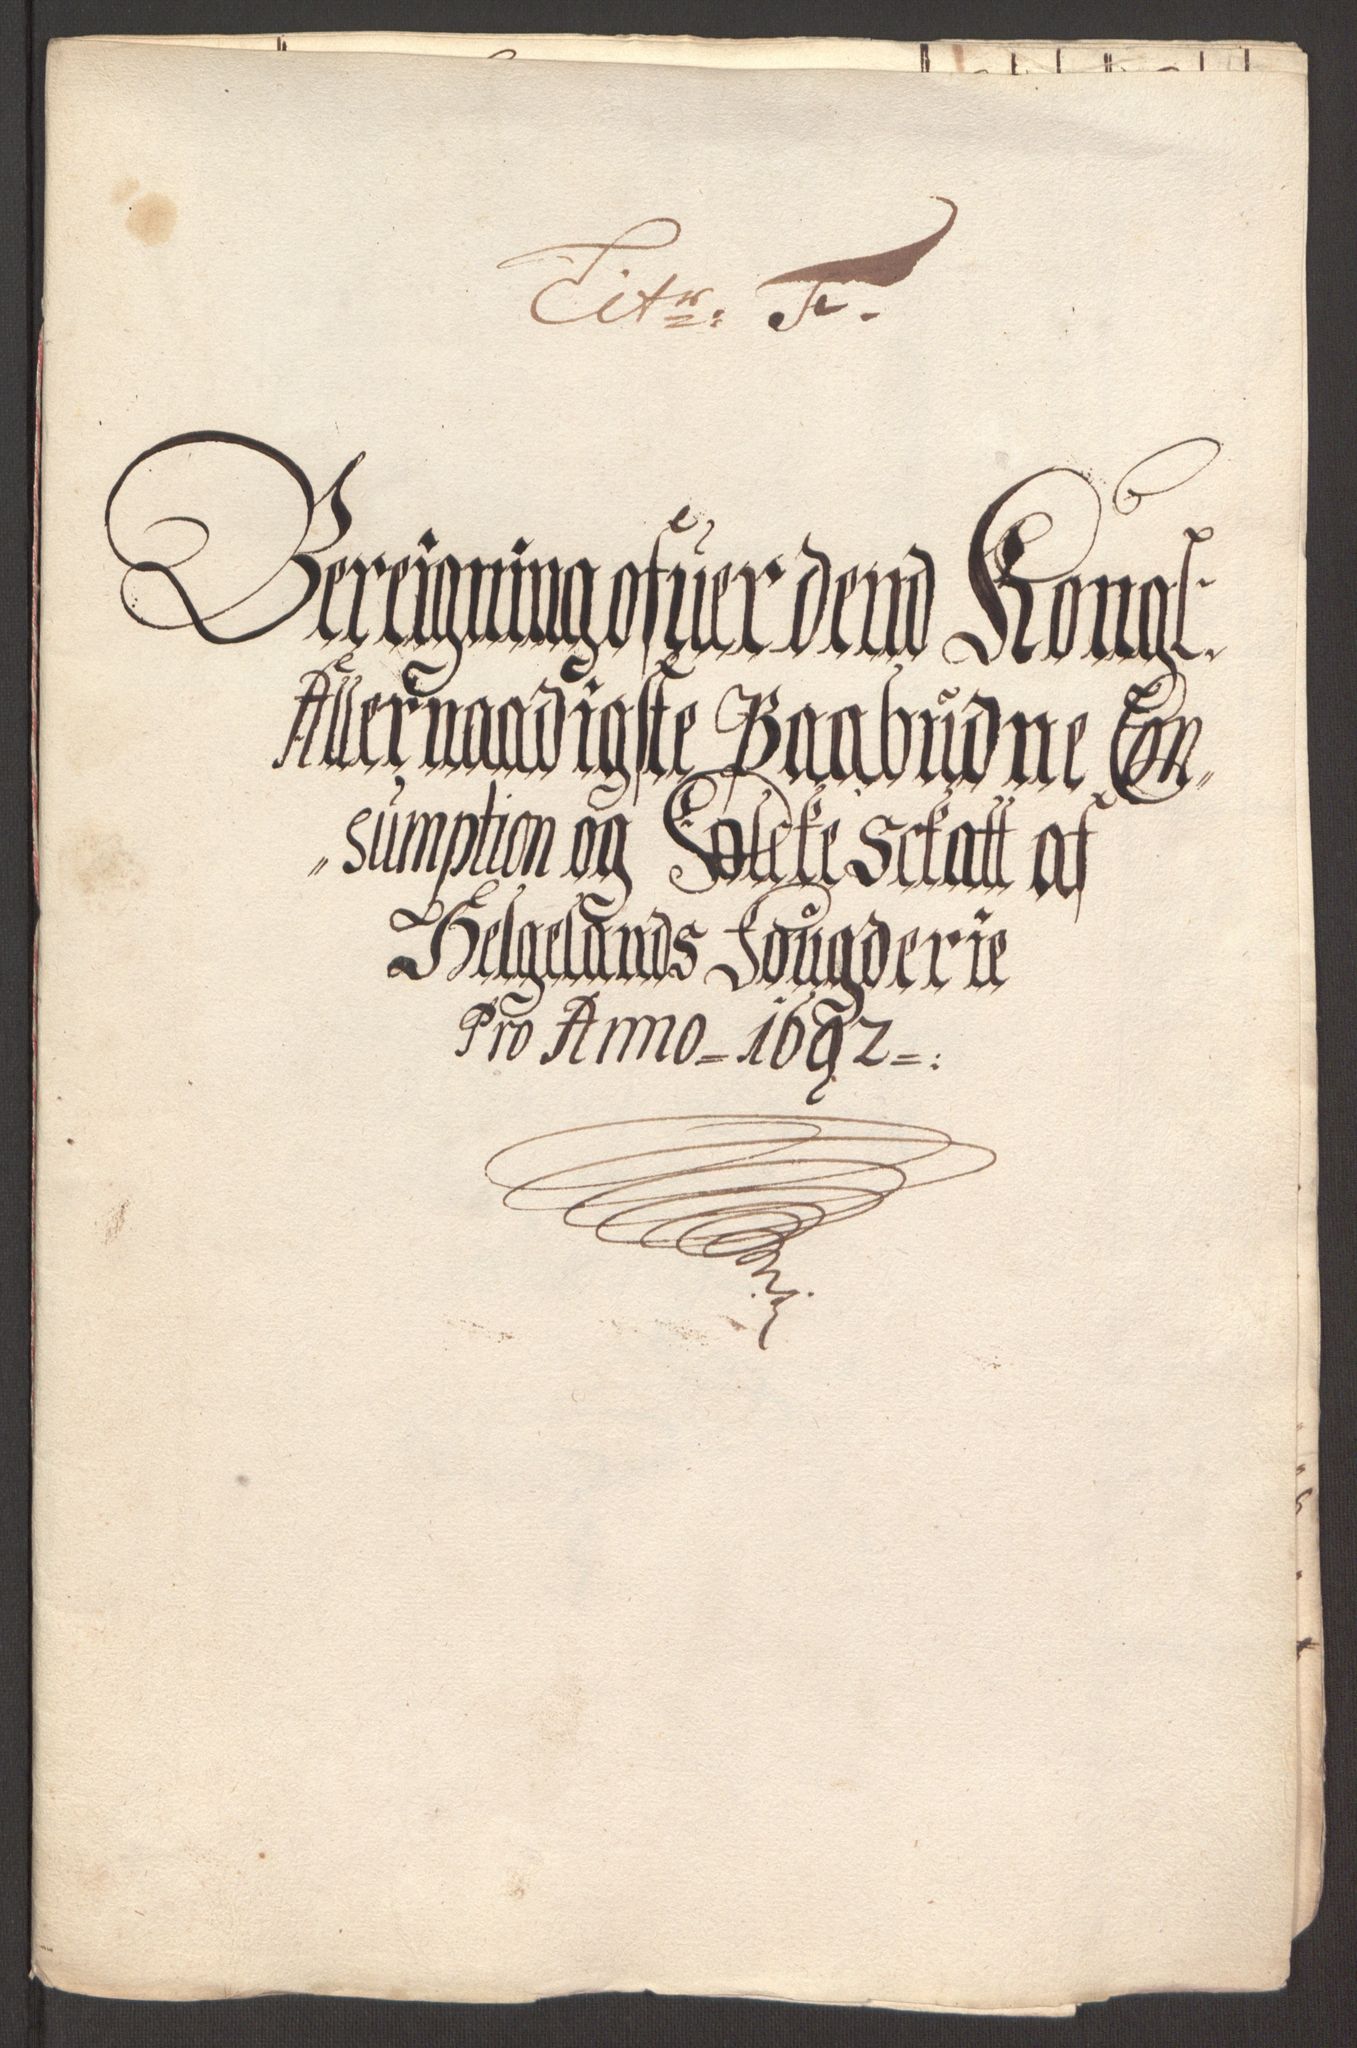 Litr: F.
Bereigning ofuer dend Kongl:
Allernaadigste Paabudne Con„
„sumption og Folcke Sckatt af
Helgelands Fougderie
Pro Anno = 1692 =: